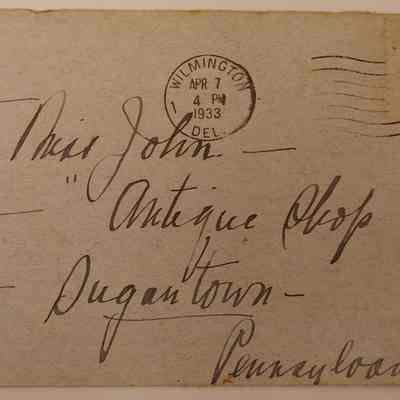 WILMINGTON
APR 7
4 PM
1933
DEL.
1
Miss John —
" Antique Shop
Sugartown —
Pennsylvan